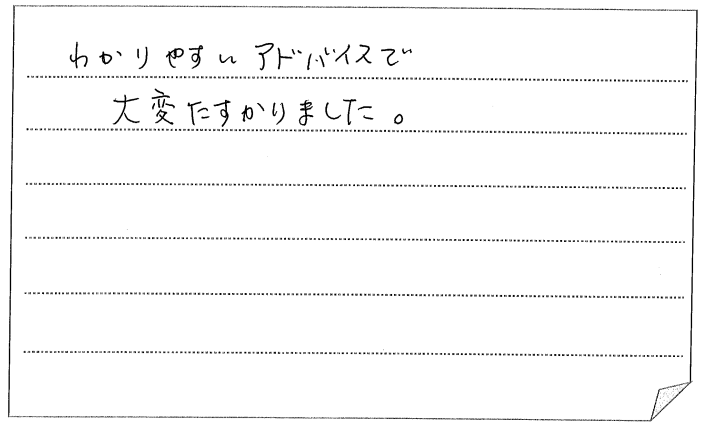 わかりやすいアドバイスで
大変たすかりました。